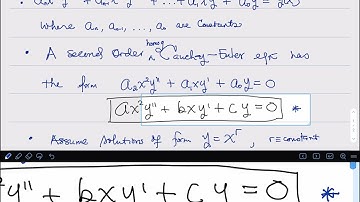 anxⁿy⁽ⁿ⁾ + ... + a₁xy' + a₀y = g(x)
where an, an-1, ..., a₀ are constants
• A second order homog Cauchy-Euler eqn has
the form a₂x²y'' + a₁xy' + a₀y = 0
ax²y'' + bxy' + cy = 0 *
• Assume solutions of form y = xʳ, r ≡ constant
²y'' + bxy' + cy = 0 *